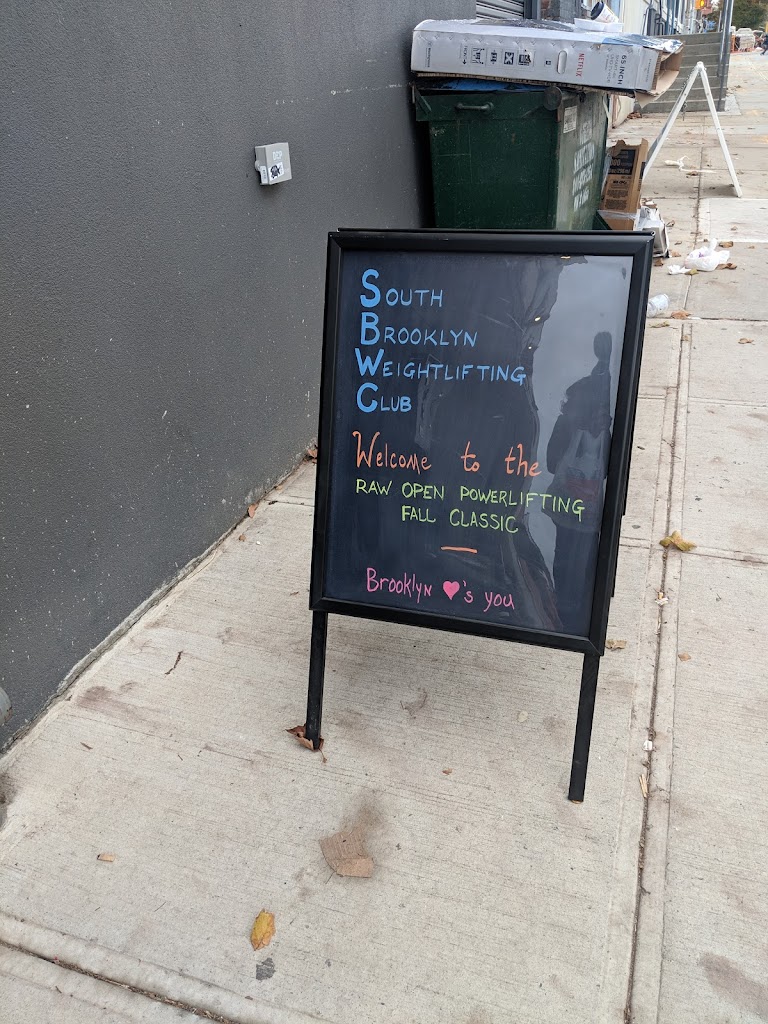 65 INCH
NETFLIX
SOUTH
BROOKLYN
WEIGHTLIFTING
CLUB
Welcome to the
RAW OPEN POWERLIFTING
FALL CLASSIC
Brooklyn ♥'s you